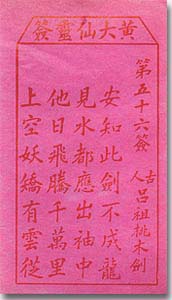 黃大仙靈簽
第五十六簽
古人 呂祖桃木劍
安知此劍不成龍
見水都應出袖中
他日飛騰千萬里
上空妖矯有雲從